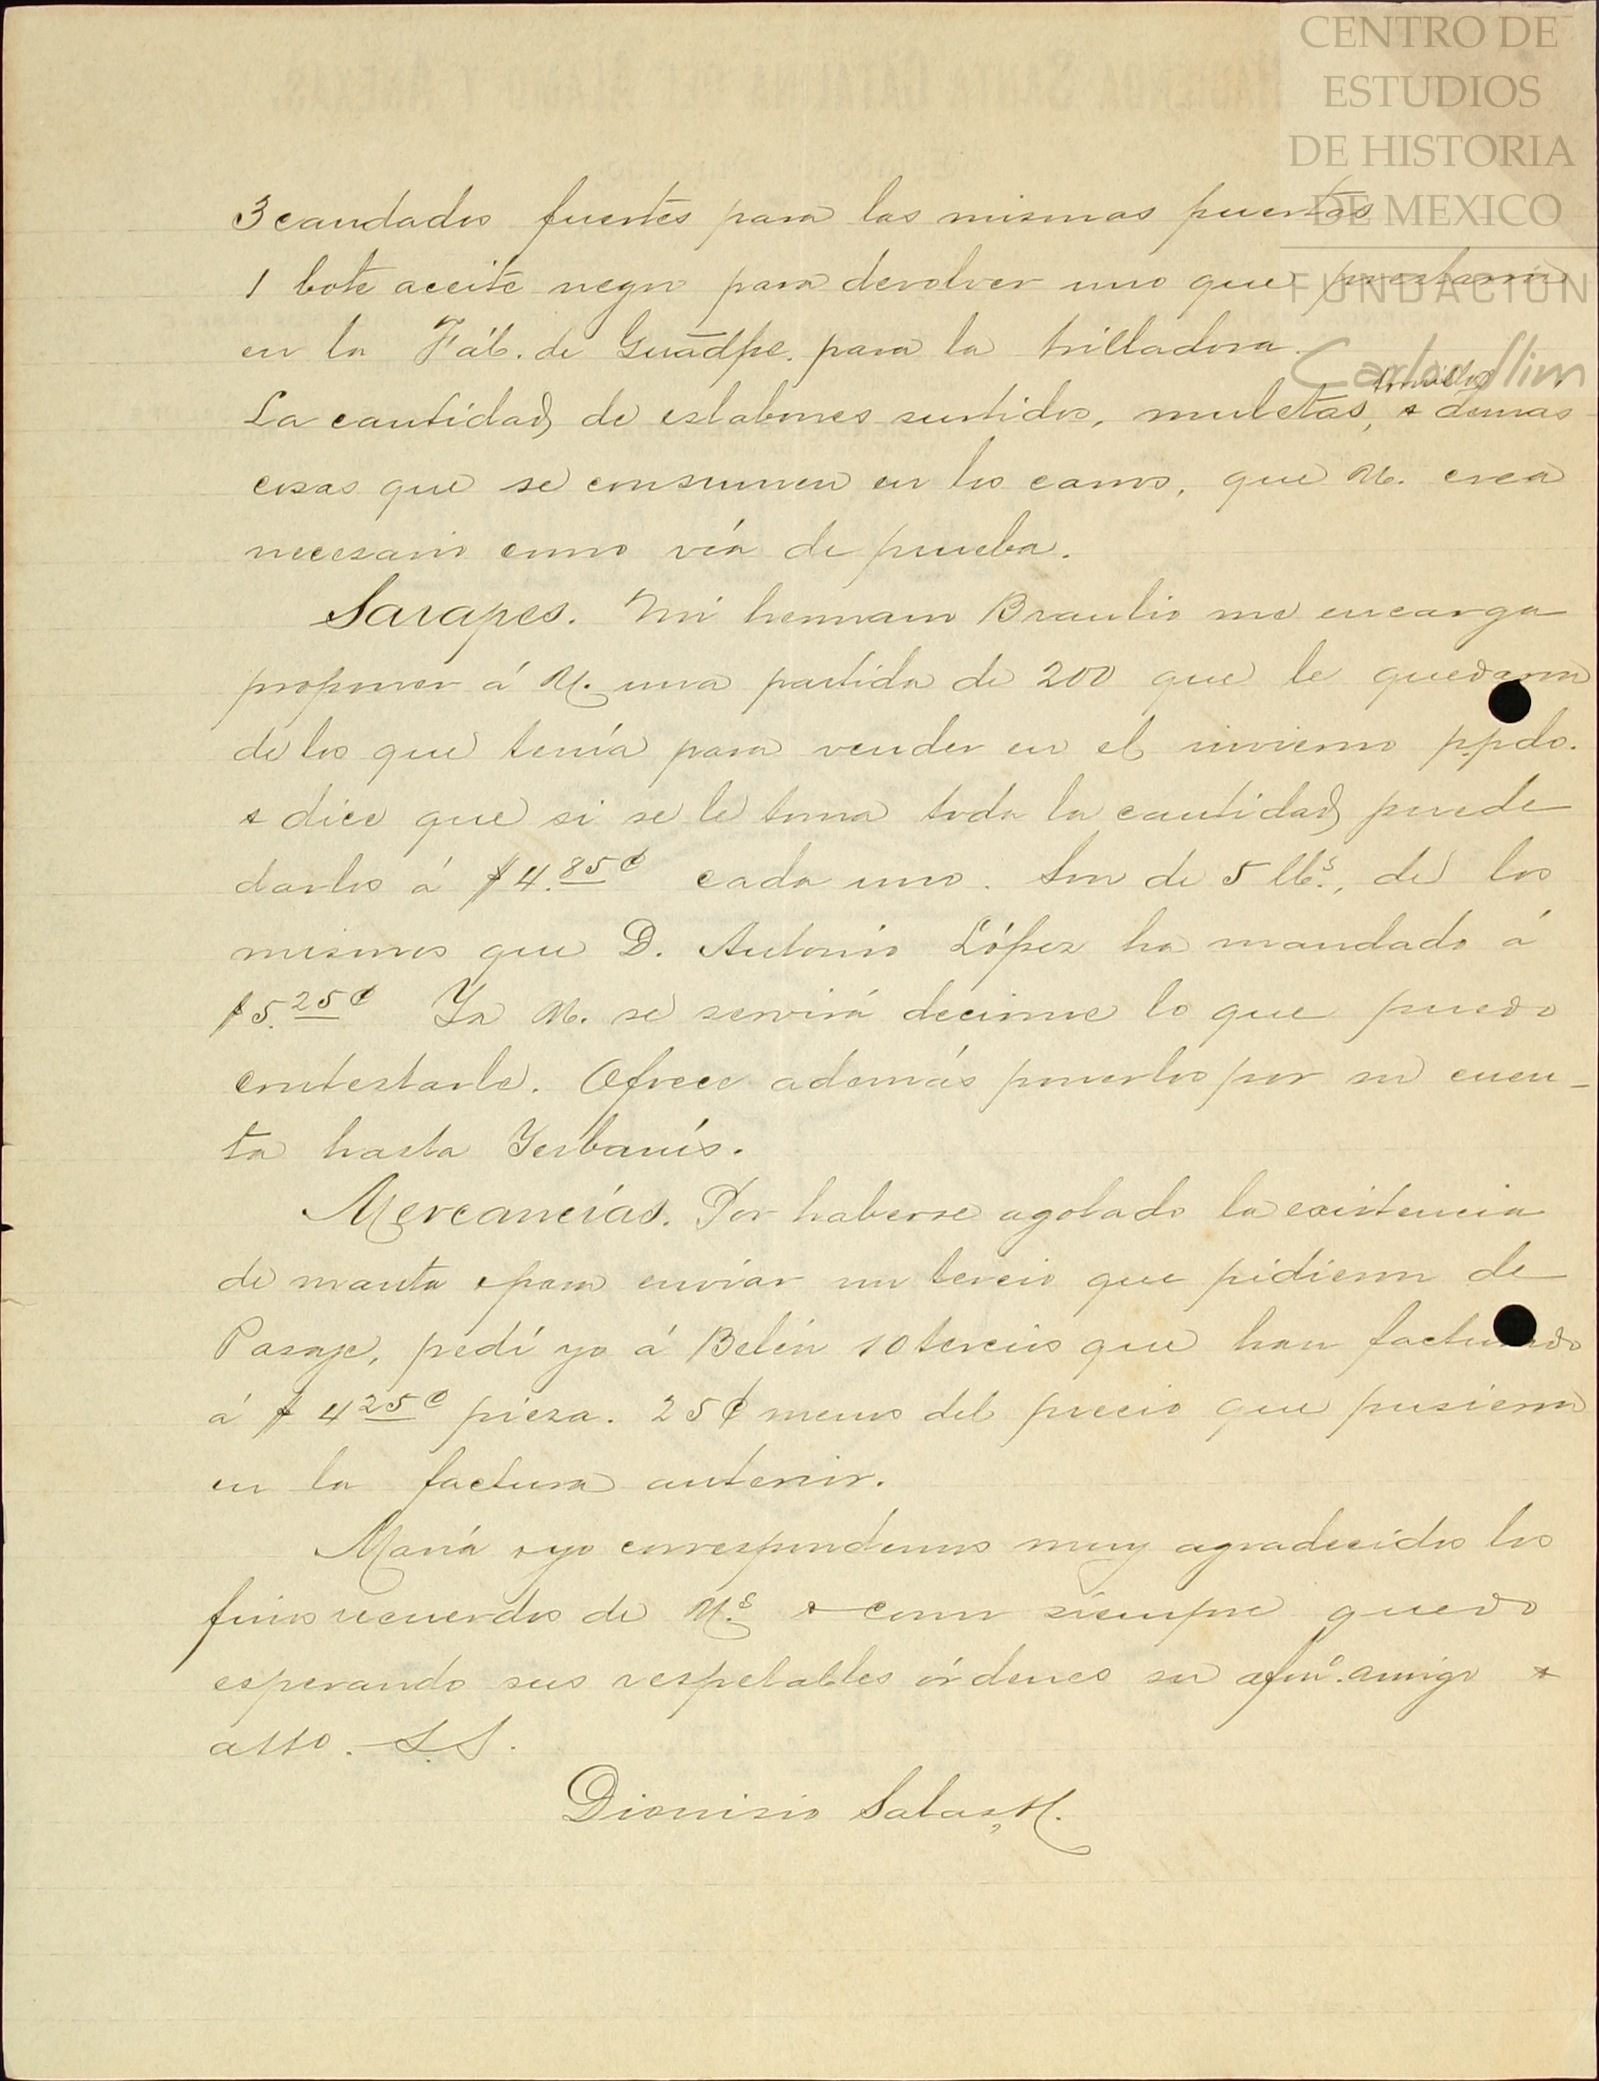 CENTRO DE
ESTUDIOS
DE HISTORIA
DE MEXICO
FUNDACIÓN
Carlos Slim
3 candados fuertes para las mismas puertas
1 bote aceite negro para devolver uno que prestaron
en la Fáb. de Guadpe. para la trilladora.
La cantidad de eslabones surtidos, muletas, tornillos & demas
cosas que se consumen en los carros, que U. crea
necesario como vía de prueba.
Sarapes. Mi hermano Braulio me encarga
proponer á U. una partida de 200 que le quedaron
de los que tenía para vender en el invierno p.pdo.
& dice que si se le toma toda la cantidad puede
darlos á $4.85¢ cada uno. Son de 5 lbs., de los
mismos que D. Antonio López ha mandado á
$5.25¢ Ya U. se servirá decirme lo que puedo
contestarle. Ofrece además ponerlos por su cuen-
ta hasta Yerbanís.
Mercancías. Por haberse agotado la existencia
de manta & para enviar un tercio que pidieron de
Pasaje, pedí yo á Belén 10 tercios que han facturado
á $4 25¢ pieza. 25¢ menos del precio que pusieron
en la factura anterior.
María & yo correspondemos muy agradecidos los
finos recuerdos de Us. & como siempre quedo
esperando sus respetables órdenes su afmo. amigo &
atto. S.S.
Dionisio Salas, H.